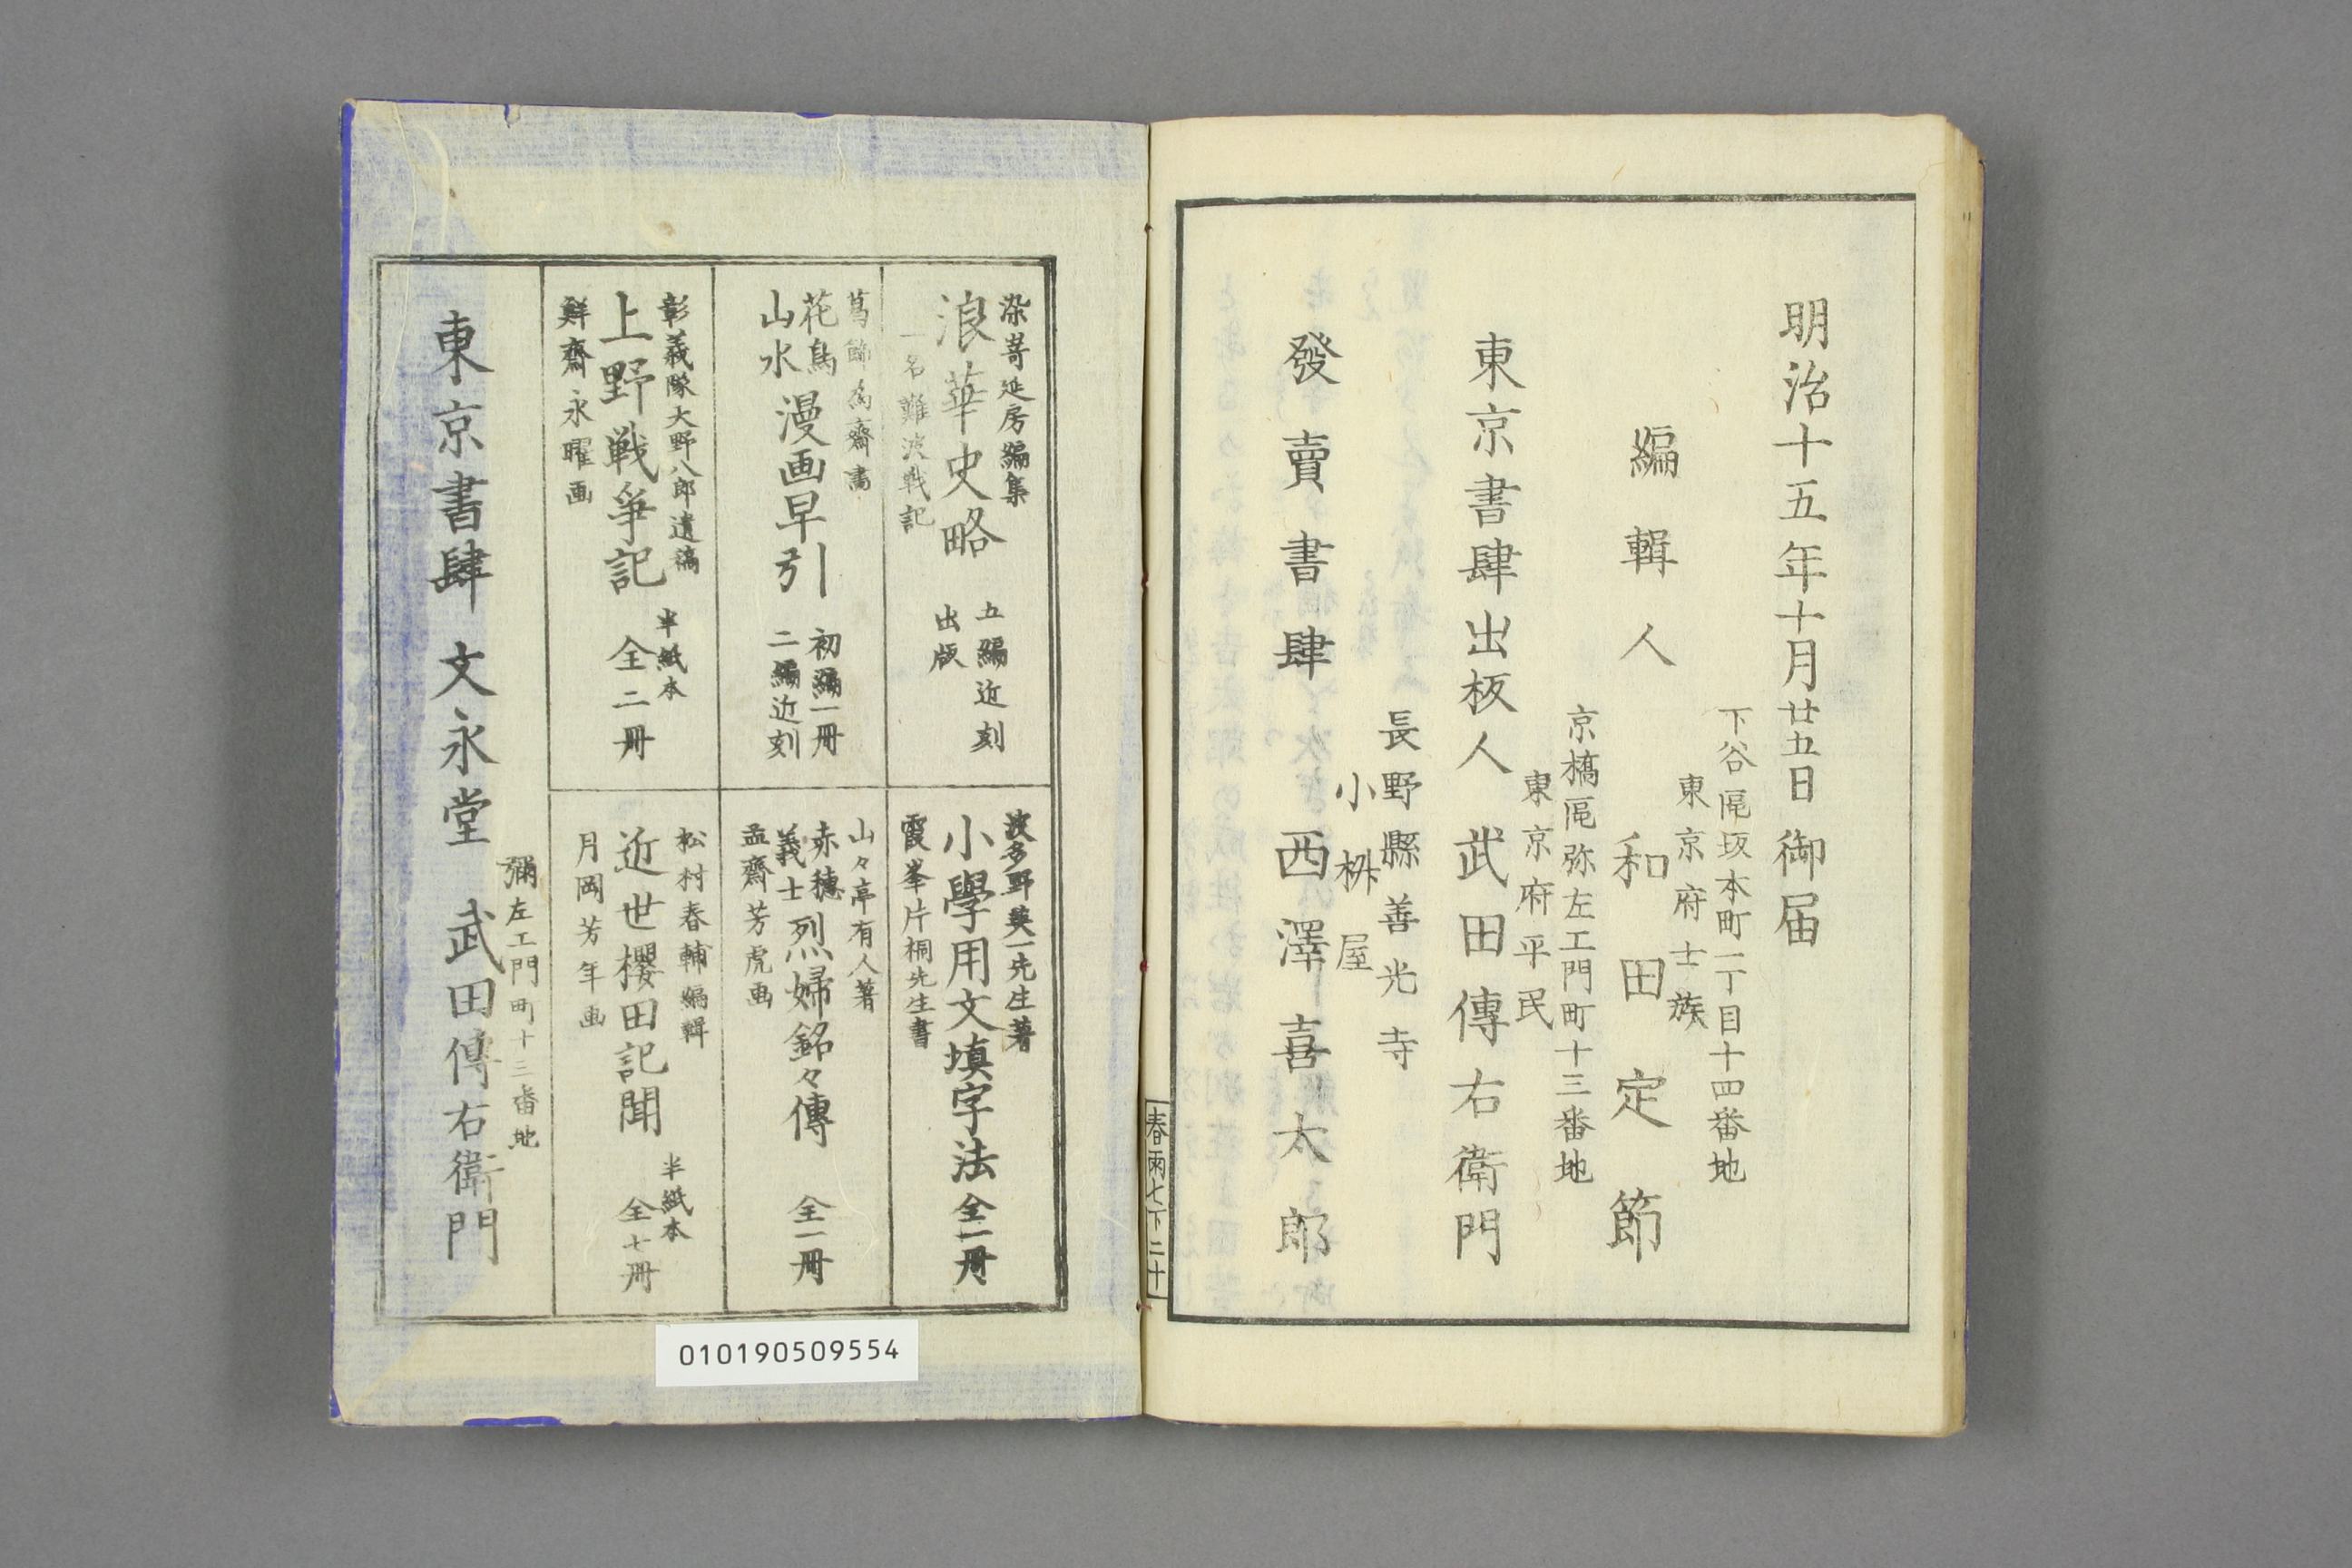 明治十五年十月廿五日御届
下谷區坂本町二丁目十四番地
東京府士族
編輯人 和田定節
京橋區弥左エ門町十三番地
東京府平民
東京書肆出板人 武田傳右衛門
長野縣善光寺
小桝屋
發賣書肆 西澤喜太郎
春雨七下 二十
染嵜延房編集
浪華史略
一名難波戦記
五編近刻
出版
波多野英一先生著
小學用文填字法 全二冊
霞峯片桐先生書
葛飾為齋畵
花鳥
山水
漫画早引
初編一冊
二編近刻
山々亭有人著
赤穗
義士
烈婦銘々傳 全一冊
孟齋芳虎画
彰義隊大野八郎遺稿
上野戦争記
半紙本
全二冊
鮮齋永曜画
松村春輔編輯
近世櫻田記聞
半紙本
全七冊
月岡芳年画
彌左エ門町十三番地
東京書肆 文永堂 武田傳右衛門
010190509554